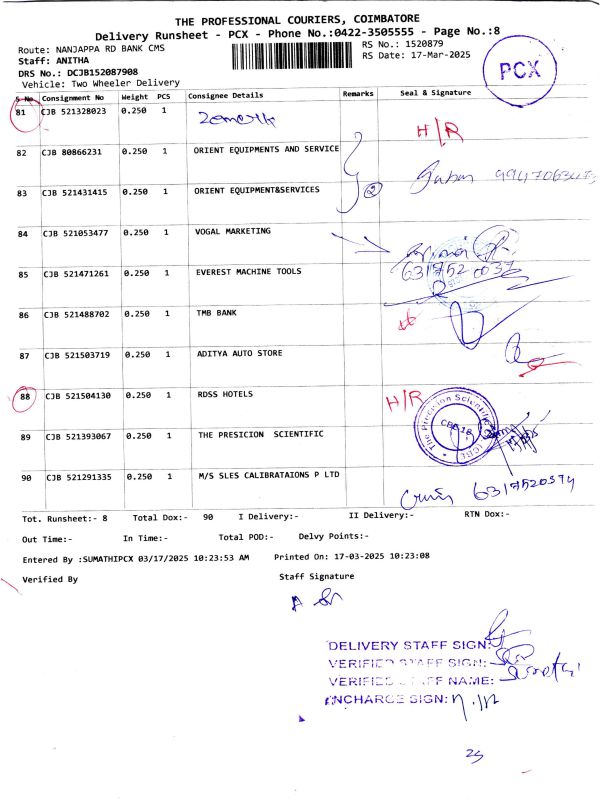 THE PROFESSIONAL COURIERS, COIMBATORE
Delivery Runsheet - PCX - Phone No.:0422-3505555 - Page No.:8
Route: NANJAPPA RD BANK CMS
RS No.: 1520879
Staff: ANITHA
RS Date: 17-Mar-2025
DRS No.: DCJB152087908
Vehicle: Two Wheeler Delivery
PCX
S No Consignment No Weight PCS Consignee Details Remarks Seal & Signature
81 CJB 521328023 0.250 1
H/R
82 CJB 80866231 0.250 1 ORIENT EQUIPMENTS AND SERVICE
83 CJB 521431415 0.250 1 ORIENT EQUIPMENT&SERVICES 2
84 CJB 521053477 0.250 1 VOGAL MARKETING
85 CJB 521471261 0.250 1 EVEREST MACHINE TOOLS 6317520037
86 CJB 521488702 0.250 1 TMB BANK
87 CJB 521503719 0.250 1 ADITYA AUTO STORE
88 CJB 521504130 0.250 1 RDSS HOTELS H/R
89 CJB 521393067 0.250 1 THE PRESICION SCIENTIFIC
The Precision Scientific
CBE-18
90 CJB 521291335 0.250 1 M/S SLES CALIBRATAIONS P LTD
Tot. Runsheet:- 8 Total Dox:- 90 I Delivery:- II Delivery:- RTN Dox:-
Out Time:- In Time:- Total POD:- Delvy Points:-
Entered By :SUMATHIPCX 03/17/2025 10:23:53 AM Printed On: 17-03-2025 10:23:08
Verified By Staff Signature
DELIVERY STAFF SIGN:
VERIFIED STAFF SIGN:
VERIFIED STAFF NAME:
INCHARGE SIGN: